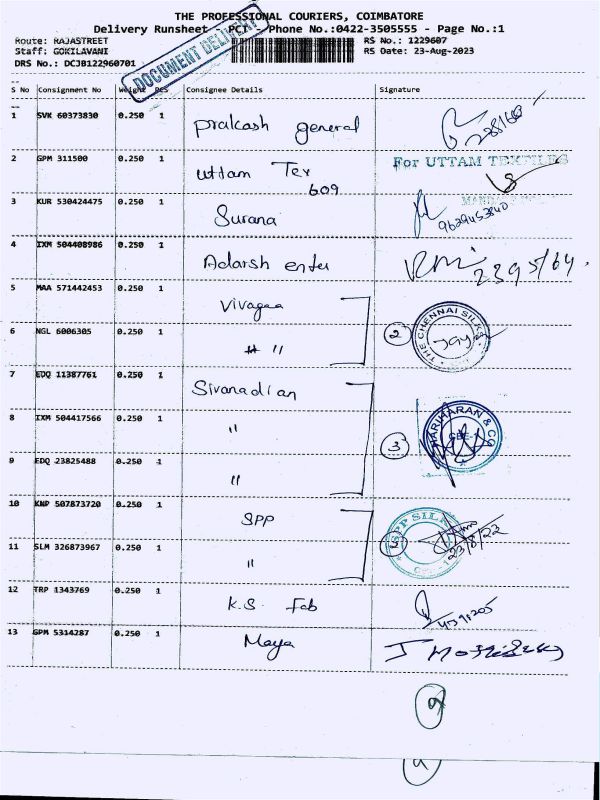 THE PROFESSIONAL COURIERS, COIMBATORE
Delivery Runsheet - PCT - Phone No.:0422-3505555 - Page No.:1
Route: RAJASTREET RS No.: 1229607
Staff: GOKILAVANI RS Date: 23-Aug-2023
DRS No.: DCJB122960701
DOCUMENT DELIVERY
S No Consignment No Weight PCS Consignee Details Signature
1 SVK 60373830 0.250 1 Prakash general
2 GPM 311500 0.250 1 Uttam Tex 609 For UTTAM TEXTILES
3 KUR 530424475 0.250 1 Surana
4 IXM 504408986 0.250 1 Adarsh enter
5 MAA 571442453 0.250 1 Vivagaa
6 NGL 6006305 0.250 1 " 2 THE CHENNAI SILKS
7 EDQ 11387761 0.250 1 Sivanadian
8 IXM 504417566 0.250 1 " 3 HARIHARAN & CO
9 EDQ 23825488 0.250 1 "
10 KNP 507873720 0.250 1 SPP SPP SILK
11 SLM 326873967 0.250 1 "
12 TRP 1343769 0.250 1 K.S. Fab
13 GPM 5314287 0.250 1 Maya